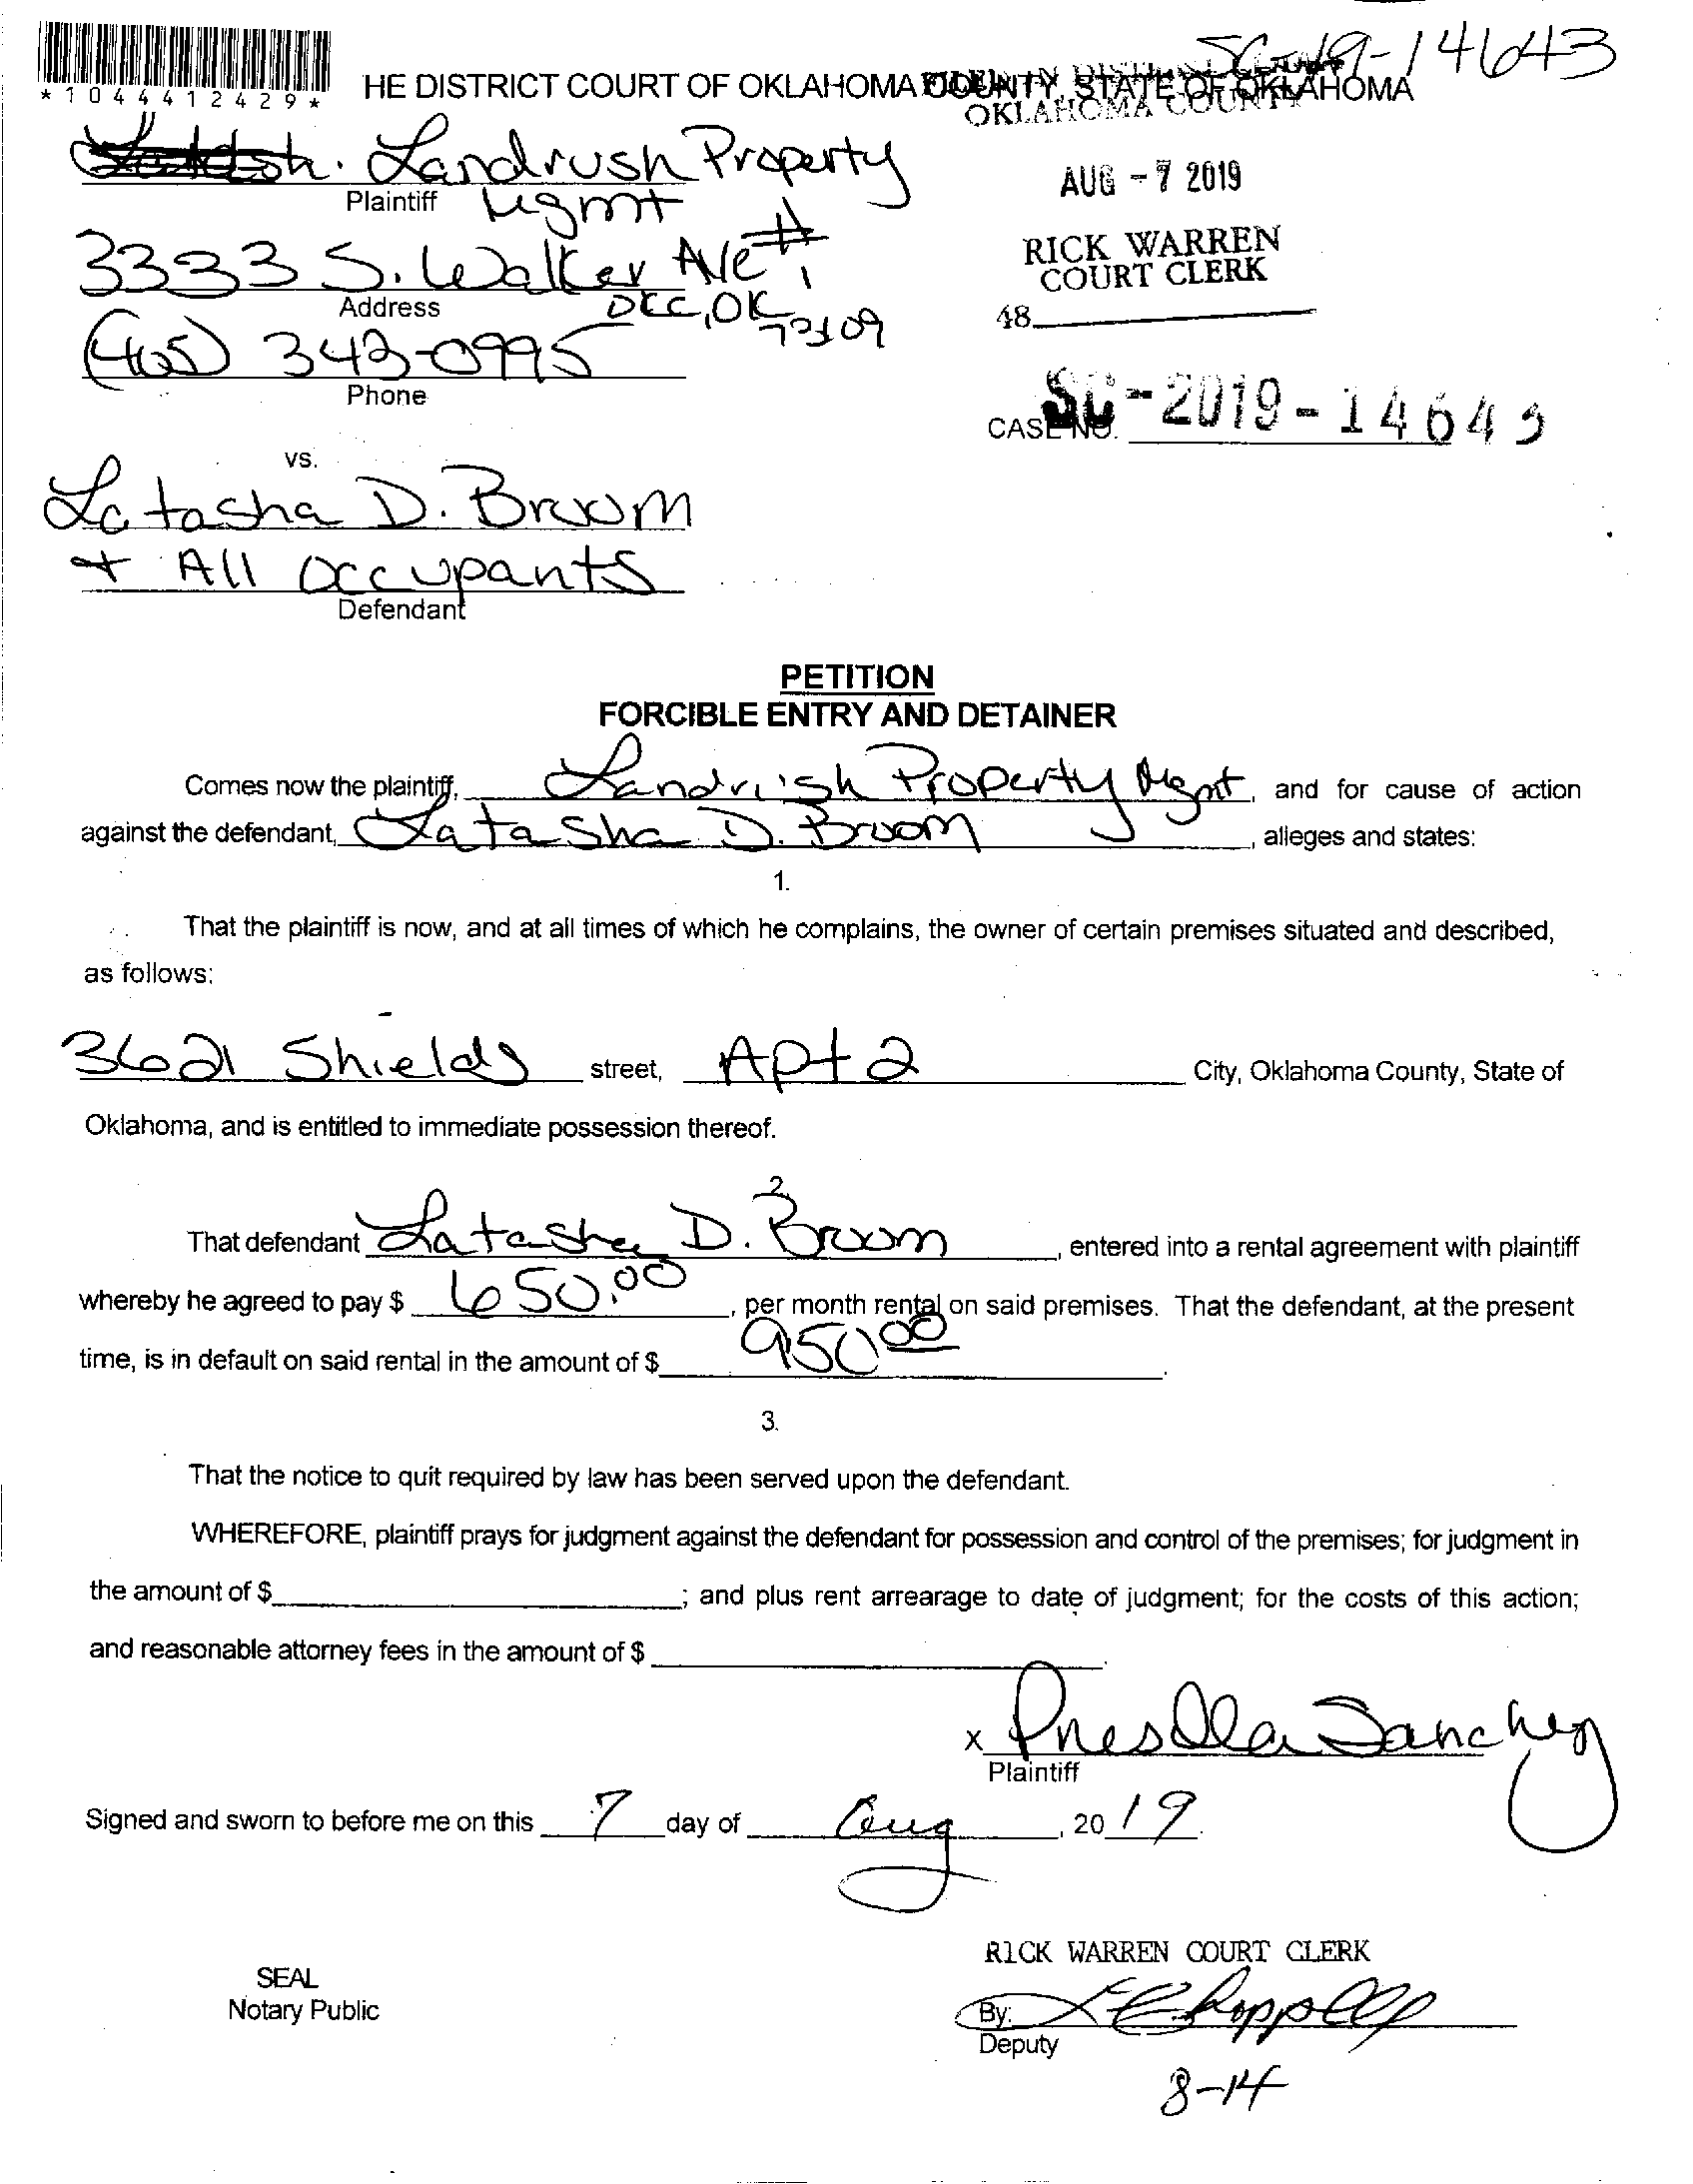 SC-19-14643
*1044412429*
HE DISTRICT COURT OF OKLAHOMA COUNTY, STATE OF OKLAHOMA
FILED IN DISTRICT COURT
OKLAHOMA COUNTY
Landrush Property
Plaintiff Mgmt
AUG - 7 2019
3333 S. Walker Ave #1
Address OKC, OK 73109
RICK WARREN
COURT CLERK
48
(405) 343-0995
Phone
CASE NO. SC-2019-14643
vs.
Latasha D. Broom
+ All Occupants
Defendant
PETITION
FORCIBLE ENTRY AND DETAINER
Comes now the plaintiff, Landrush Property Mgmt, and for cause of action
against the defendant, Latasha D. Broom, alleges and states:
1.
That the plaintiff is now, and at all times of which he complains, the owner of certain premises situated and described,
as follows:
3621 Shields street, Apt 2 City, Oklahoma County, State of
Oklahoma, and is entitled to immediate possession thereof.
2.
That defendant Latasha D. Broom, entered into a rental agreement with plaintiff
whereby he agreed to pay $ 650.00, per month rental on said premises. That the defendant, at the present
time, is in default on said rental in the amount of $ 950.00.
3.
That the notice to quit required by law has been served upon the defendant.
WHEREFORE, plaintiff prays for judgment against the defendant for possession and control of the premises; for judgment in
the amount of $ ; and plus rent arrearage to date of judgment; for the costs of this action;
and reasonable attorney fees in the amount of $ .
x Priscilla Sanchez
Plaintiff
Signed and sworn to before me on this 7 day of Aug, 2019.
RICK WARREN COURT CLERK
SEAL
Notary Public
By:
Deputy
8-14